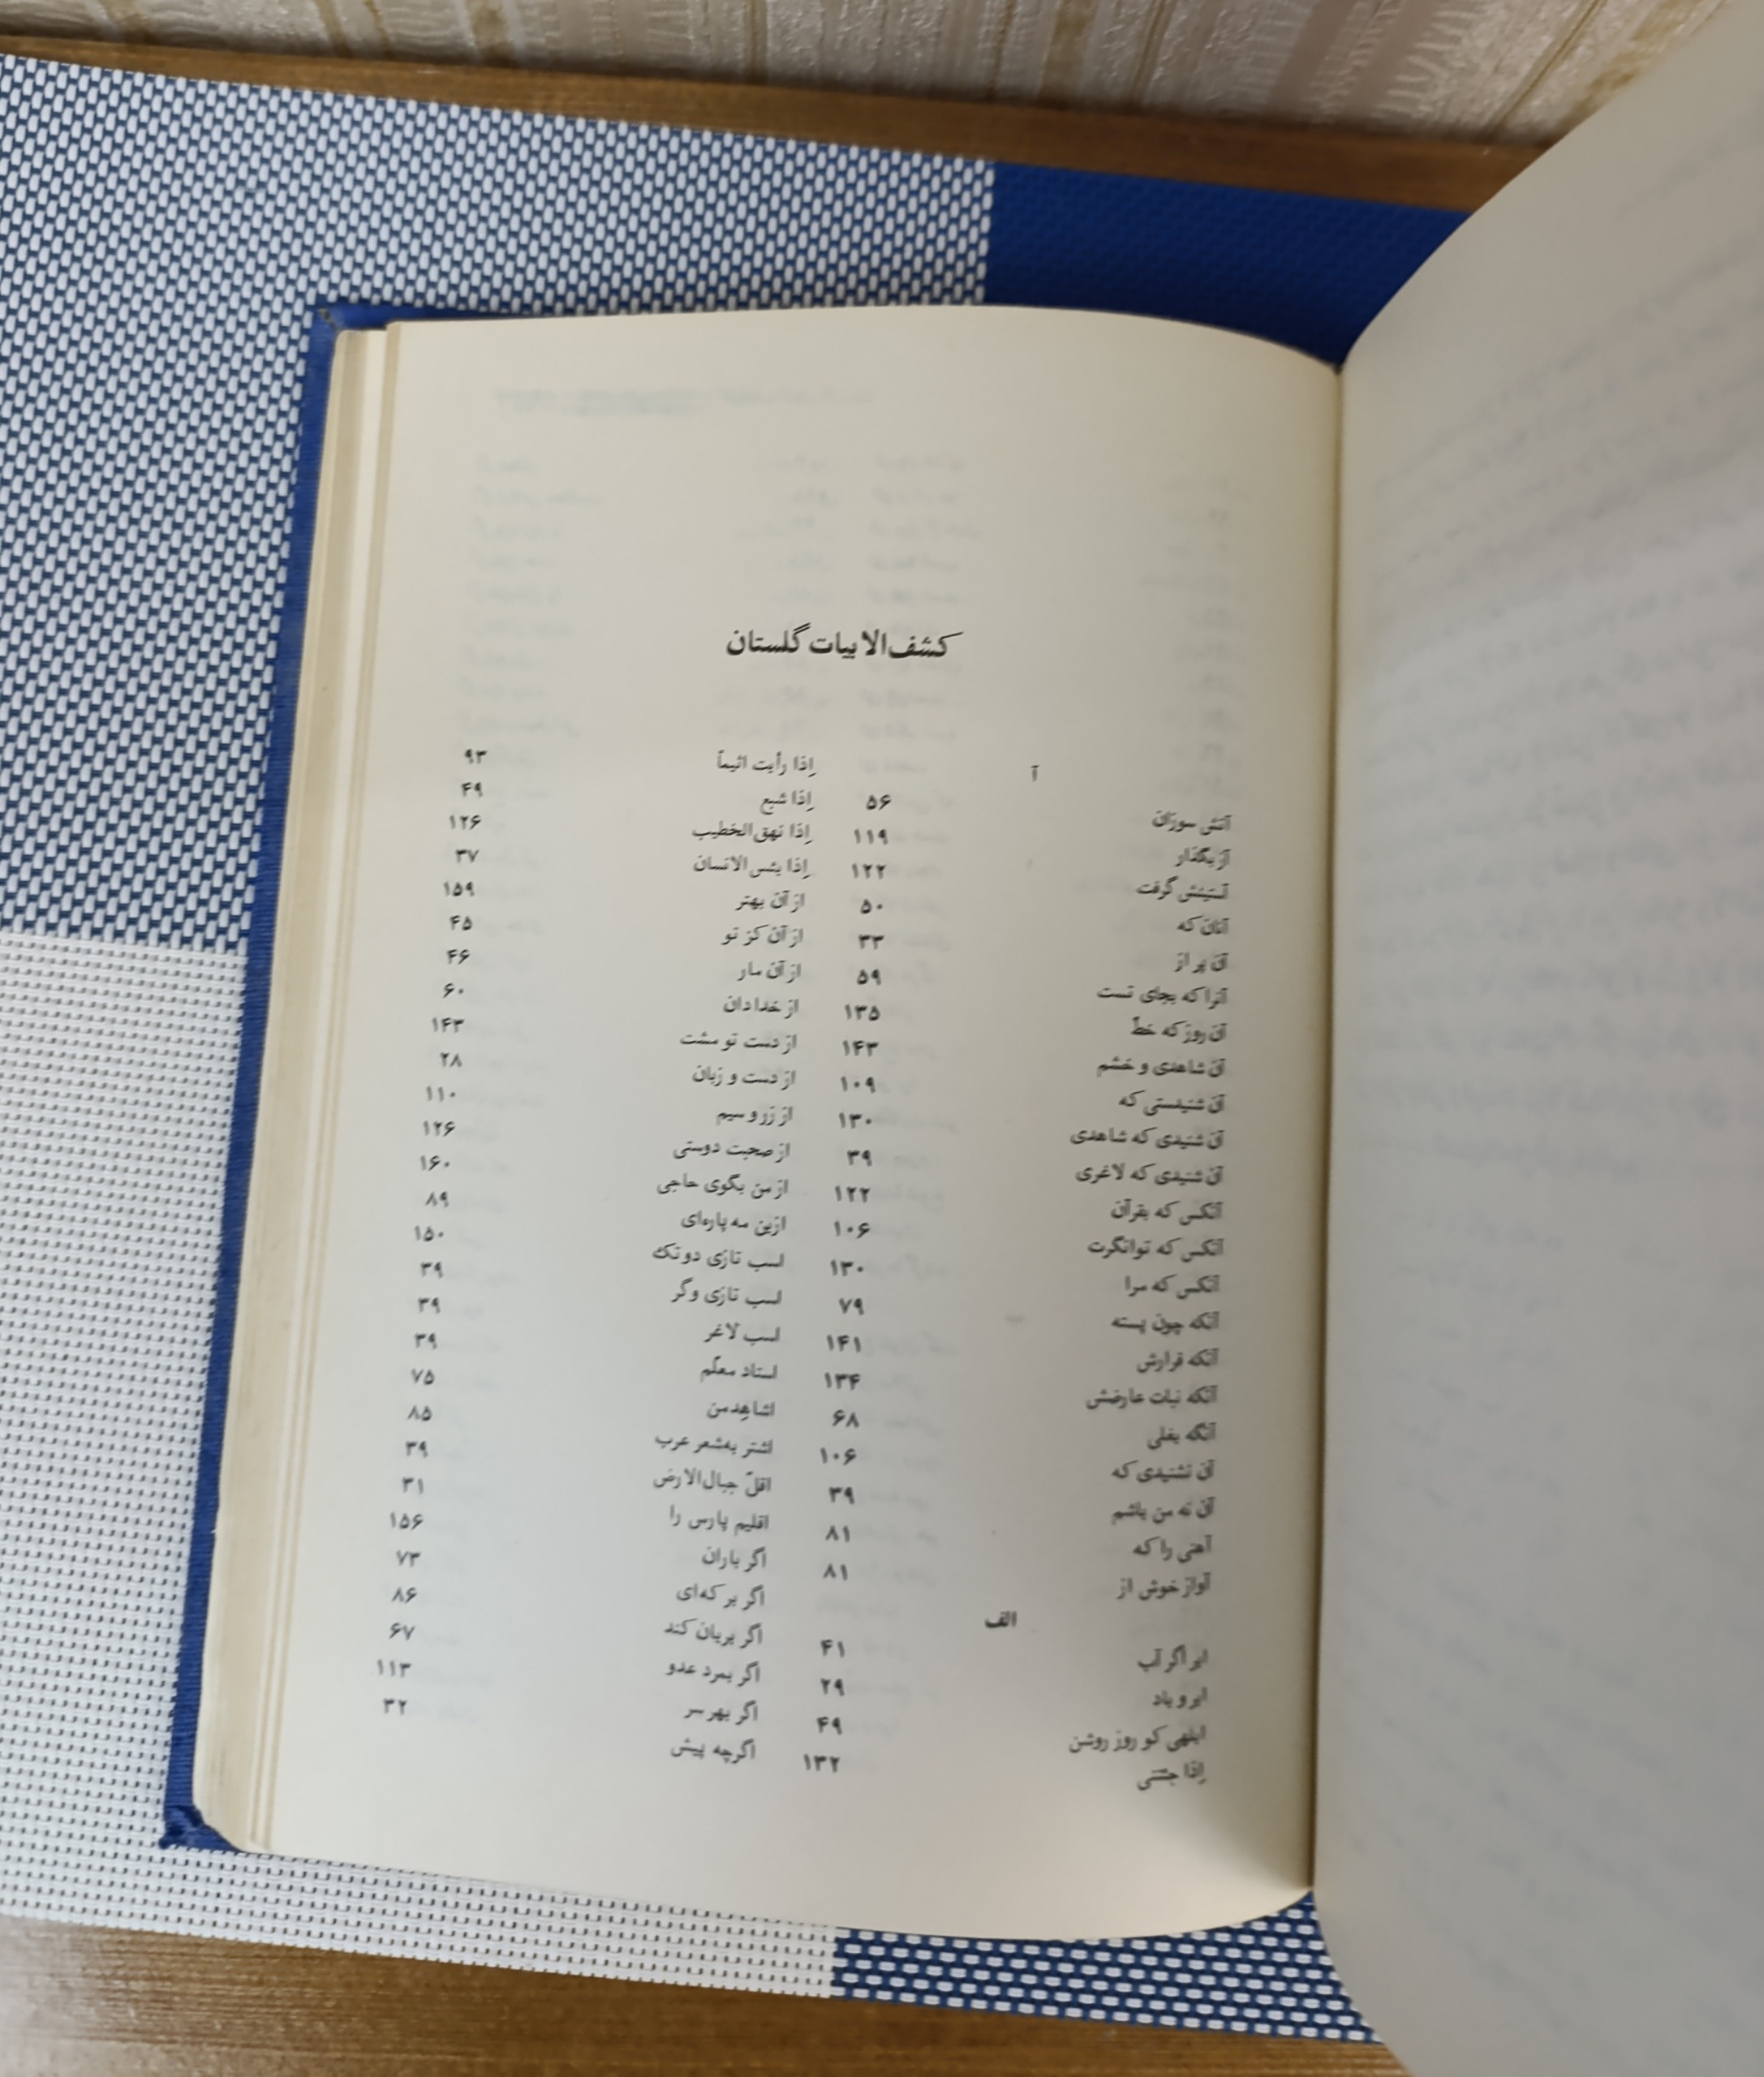 کشف‌الابیات گلستان
آ
آتش سوزان ۵۶
آز بگذار ۱۱۹
آستینش گرفت ۱۲۲
آنان که ۵۰
آن پر از ۳۳
آنرا که بجای تست ۵۹
آن روز که خطّ ۱۳۵
آن شاهدی و خشم ۱۴۳
آن شنیدستی که ۱۰۹
آن شنیدی که شاهدی ۱۳۰
آن شنیدی که لاغری ۳۹
آنکس که بقرآن ۱۲۲
آنکس که توانگرت ۱۰۶
آنکس که مرا ۱۳۰
آنکه چون پسته ۷۹
آنکه قرارش ۱۴۱
آنکه نبات عارضش ۱۳۴
آنگه بغلی ۶۸
آن نشنیدی که ۱۰۶
آن نه من باشم ۳۹
آهنی را که ۸۱
آواز خوش از ۸۱
الف
ابر اگر آب ۴۱
ابر و باد ۲۹
ابلهی کو روز روشن ۴۹
إذا جئتنی ۱۳۲
إذا رأیت اثیماً ۹۳
إذا شبع ۴۹
إذا نهق‌الخطیب ۱۲۶
إذا یئس‌الانسان ۳۷
از آن بهتر ۱۵۹
از آن کز تو ۴۵
از آن مار ۴۶
از خدا دان ۶۰
از دست تو مشت ۱۴۳
از دست و زبان ۲۸
از زر و سیم ۱۱۰
از صحبت دوستی ۱۲۶
از من بگوی حاجی ۱۶۰
ازین مه پاره‌ای ۸۹
اسب تازی دو تک ۱۵۰
اسب تازی و گر ۳۹
اسب لاغر ۳۹
استاد معلّم ۳۹
اشاهدمن ۷۵
اشتر به‌شعر عرب ۸۵
اقلّ جبال‌الارض ۳۹
اقلیم پارس را ۳۱
اگر باران ۱۵۶
اگر بر که‌ای ۷۳
اگر بریان کند ۸۶
اگر بمرد عدو ۶۷
اگر بهر سر ۱۱۳
اگرچه پیش ۳۲